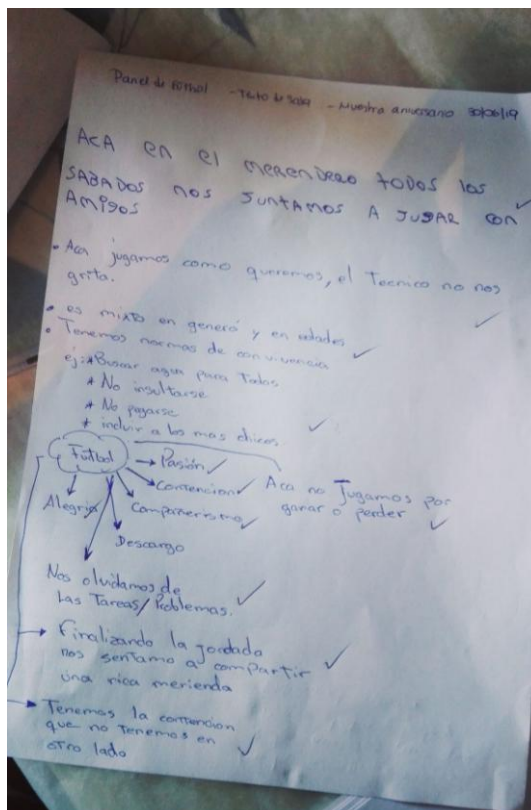 Panel de Fútbol - Texto de Sala - Muestra aniversario 30/06/19
ACA EN el merendero todos los
SABADOS nos JUNTAMOS A JUGAR CON
AMIGOS
• Aca jugamos como queremos, el Tecnico no nos
grita.
• es mixto en genero y en edades
• Tenemos normas de convivencia
ej: * Buscar agua para Todos
* No insultarse
* No pegarse
* incluir a los mas chicos
Futbol
→ Pasión
→ Contencion
Aca no Jugamos por
ganar o perder
Alegria
Compañerismo
Descargo
Nos olvidamos de
Las Tareas/Problemas.
→ Finalizando la jordada
nos sentamo a compartir
una rica merienda
→ Tenemos la contencion
que no tenemos en
otro lado